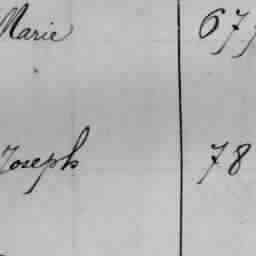 Marie 677
Joseph 78